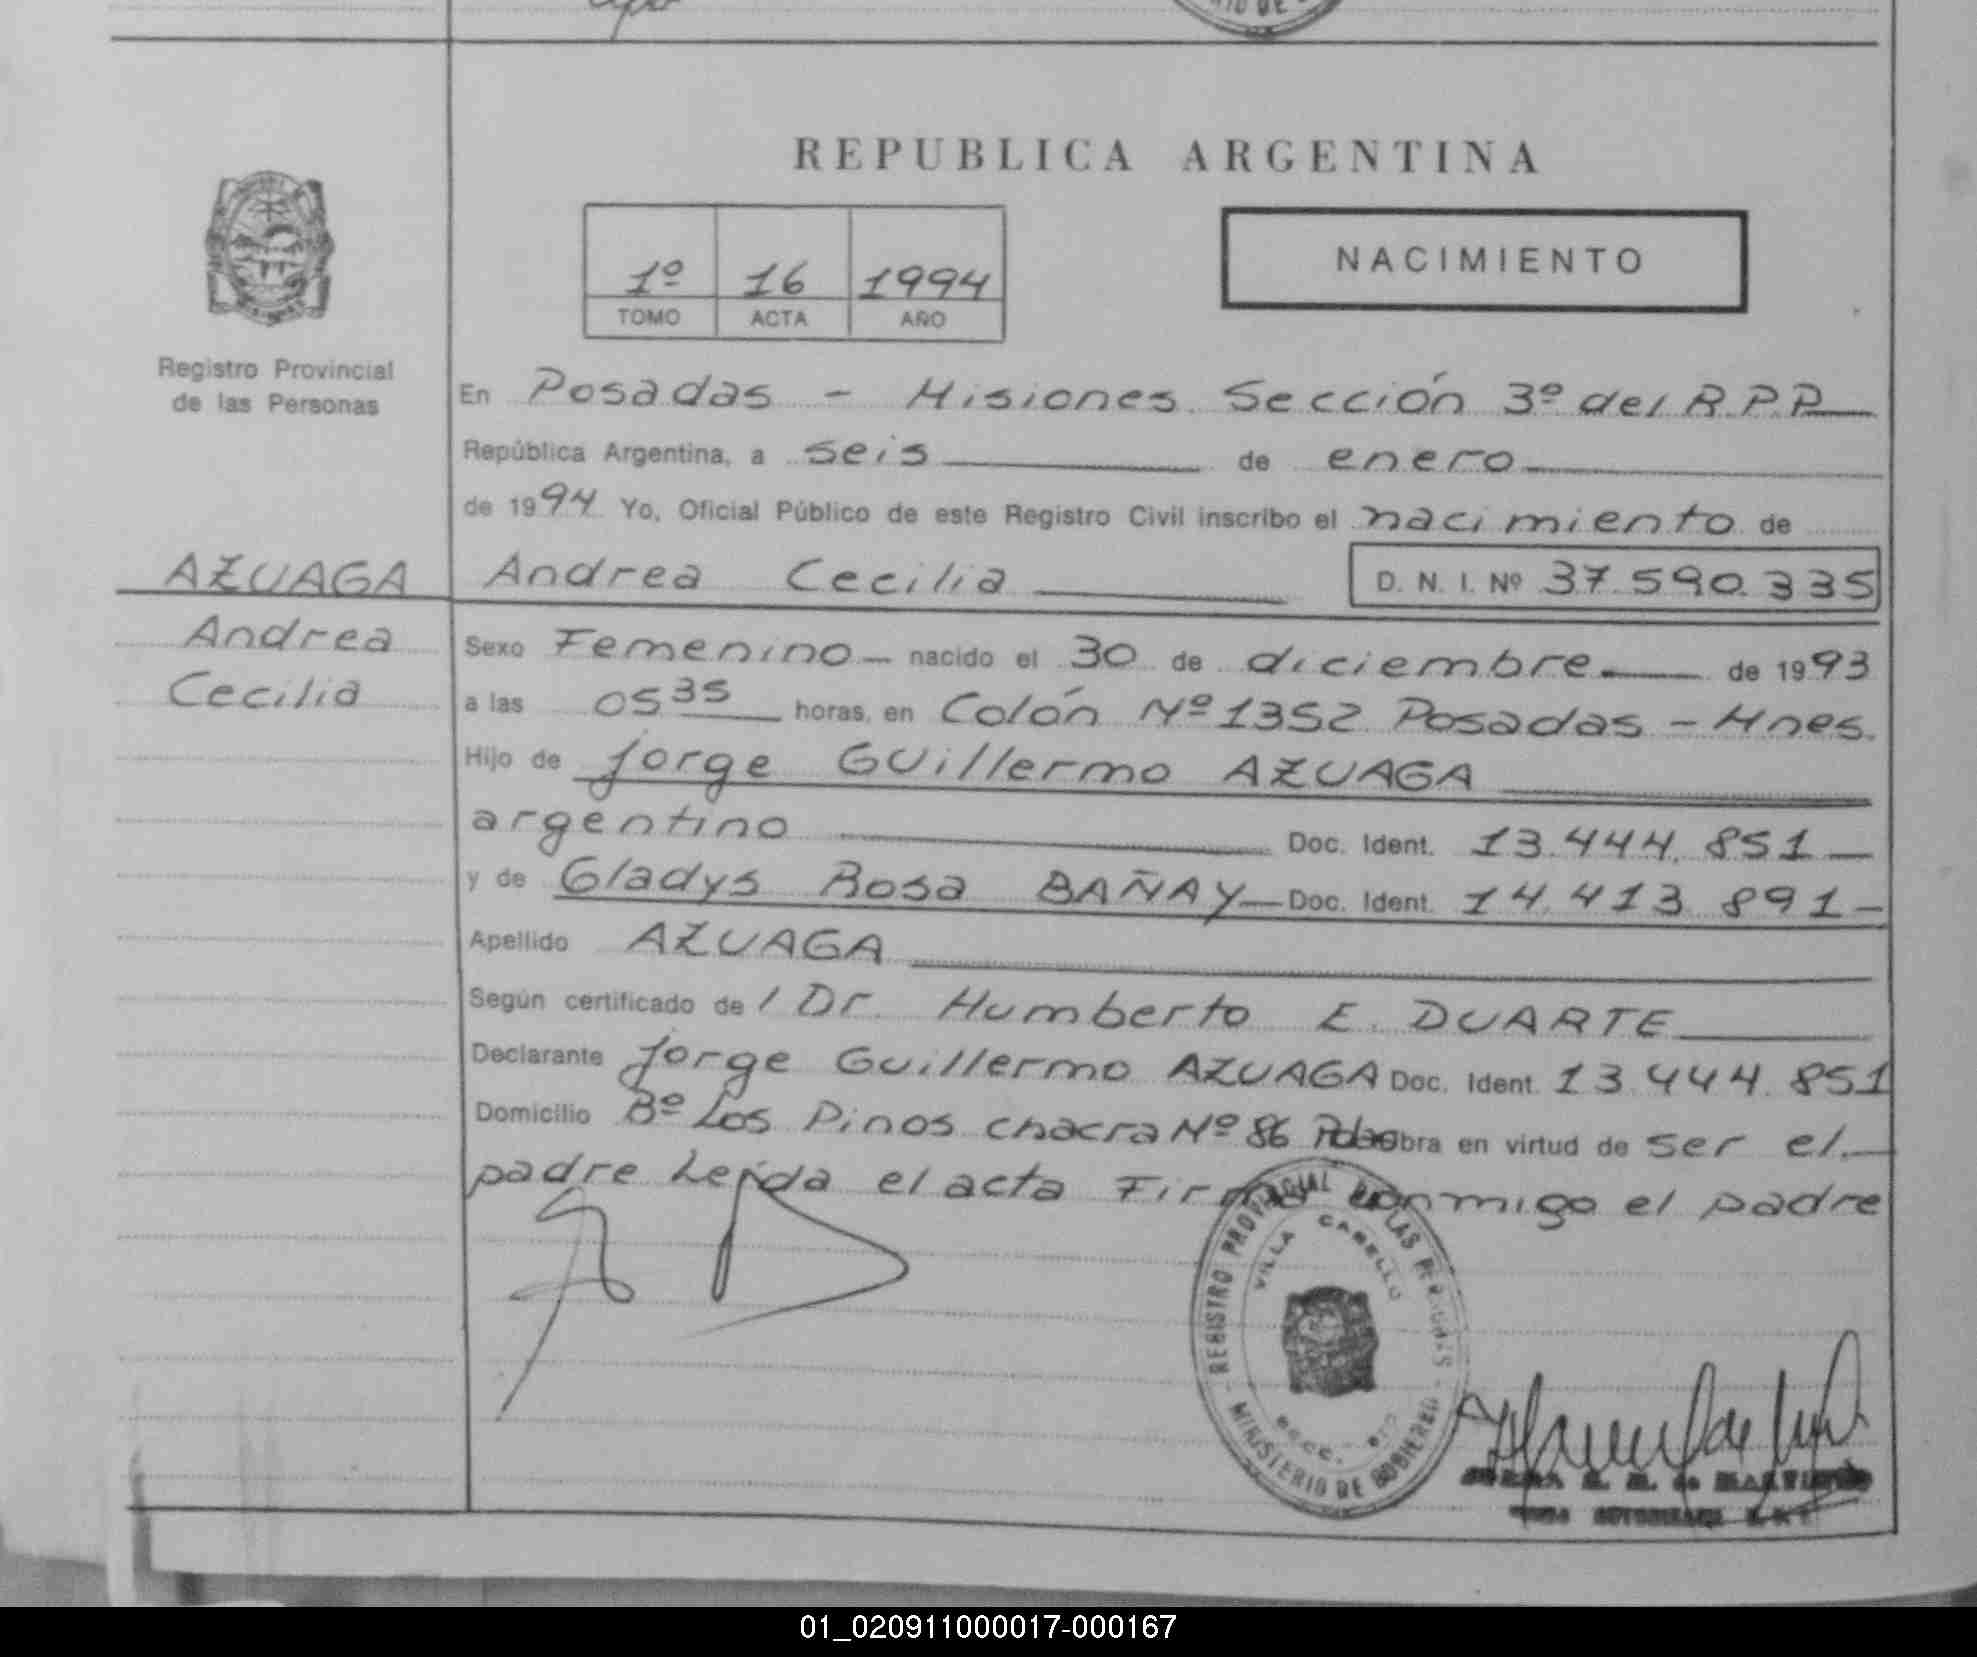 REPUBLICA ARGENTINA
1º 16 1994
TOMO ACTA AÑO
NACIMIENTO
Registro Provincial
de las Personas
En Posadas - Misiones. Sección 3º del R.P.P.
República Argentina, a seis de enero
de 1994 Yo, Oficial Público de este Registro Civil inscribo el nacimiento de
AZUAGA
Andrea
Cecilia
Andrea Cecilia D. N. I. Nº 37.590.335
Sexo Femenino - nacido el 30 de diciembre de 1993
a las 05 35 horas, en Colón Nº 1352 Posadas - Mnes.
Hijo de Jorge Guillermo AZUAGA
argentino Doc. Ident. 13.444.851
y de Gladys Rosa BAÑAY Doc. Ident. 14.413.891
Apellido AZUAGA
Según certificado de l Dr. Humberto E. DUARTE
Declarante Jorge Guillermo AZUAGA Doc. Ident. 13.444.851
Domicilio Bº Los Pinos chacra Nº 86 obra en virtud de ser el
padre Leída el acta Firma conmigo el padre
REGISTRO PROVINCIAL DE LAS PERSONAS
VILLA CABELLO
MINISTERIO DE GOBIERNO
01_020911000017-000167